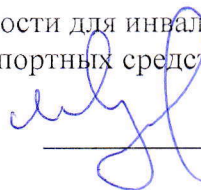 ости для инвал
портных средст